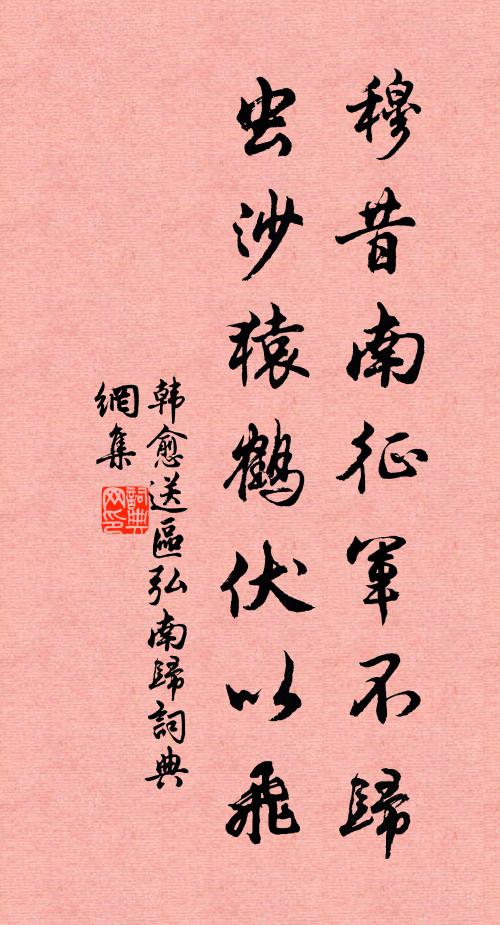 穆昔南征军不歸
虫沙猿鶴伏以飛
韩愈送區弘南歸詞典
網集
詞典
网印